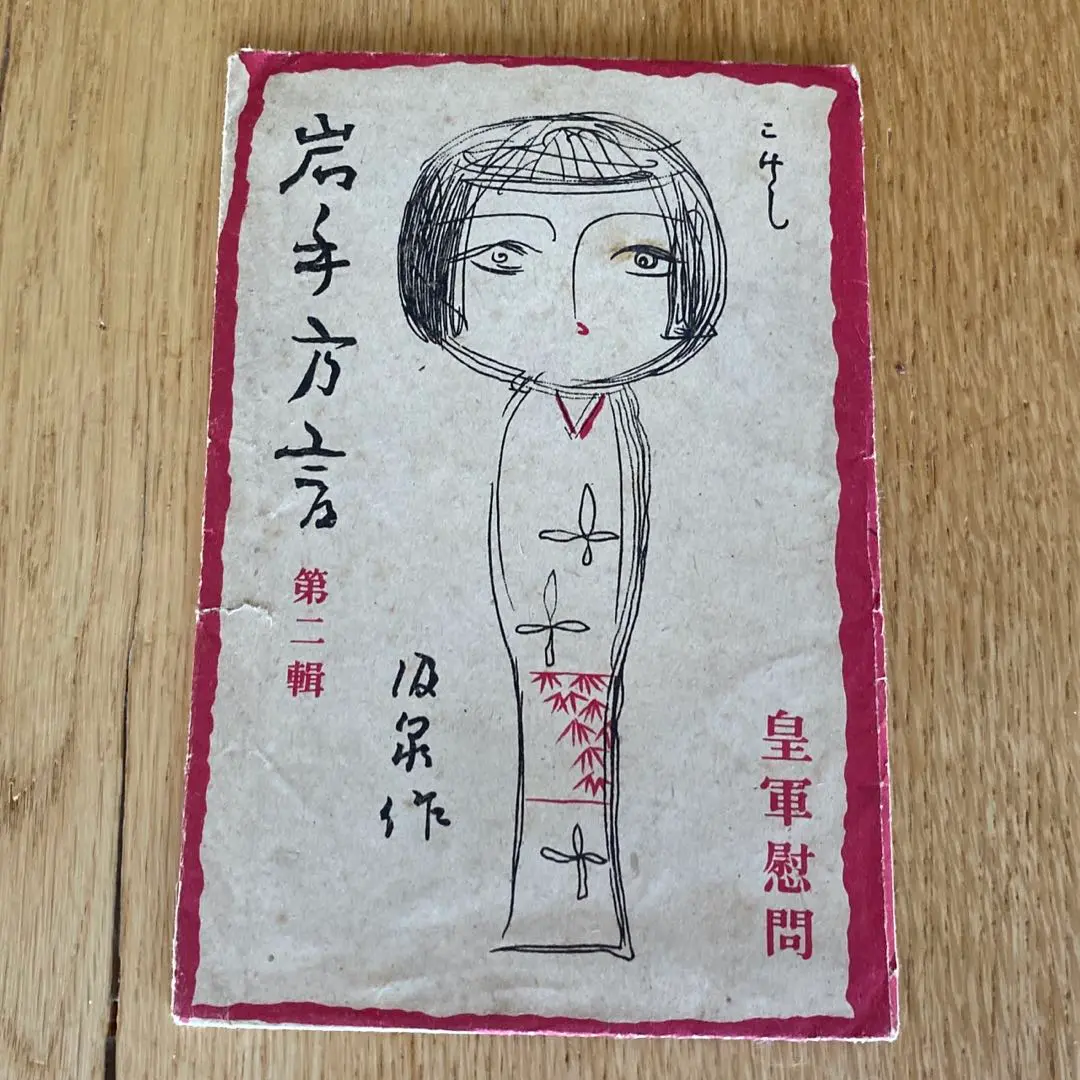 こけし
皇軍慰問
泉作
岩手方言 第二輯